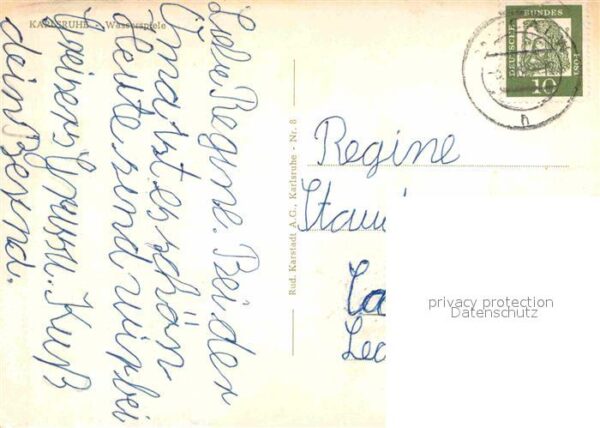 KARLSRUHE - Wasserspiele
Liebe Regine. Bei der
Oma ist es schön
Heute sind wir bei
Gruss u. Kuß
dein Bernd.
Rud. Karstadt A.G., Karlsruhe - Nr. 8
DEUTSCHE BUNDESPOST
10
h
Regine
privacy protection
Datenschutz